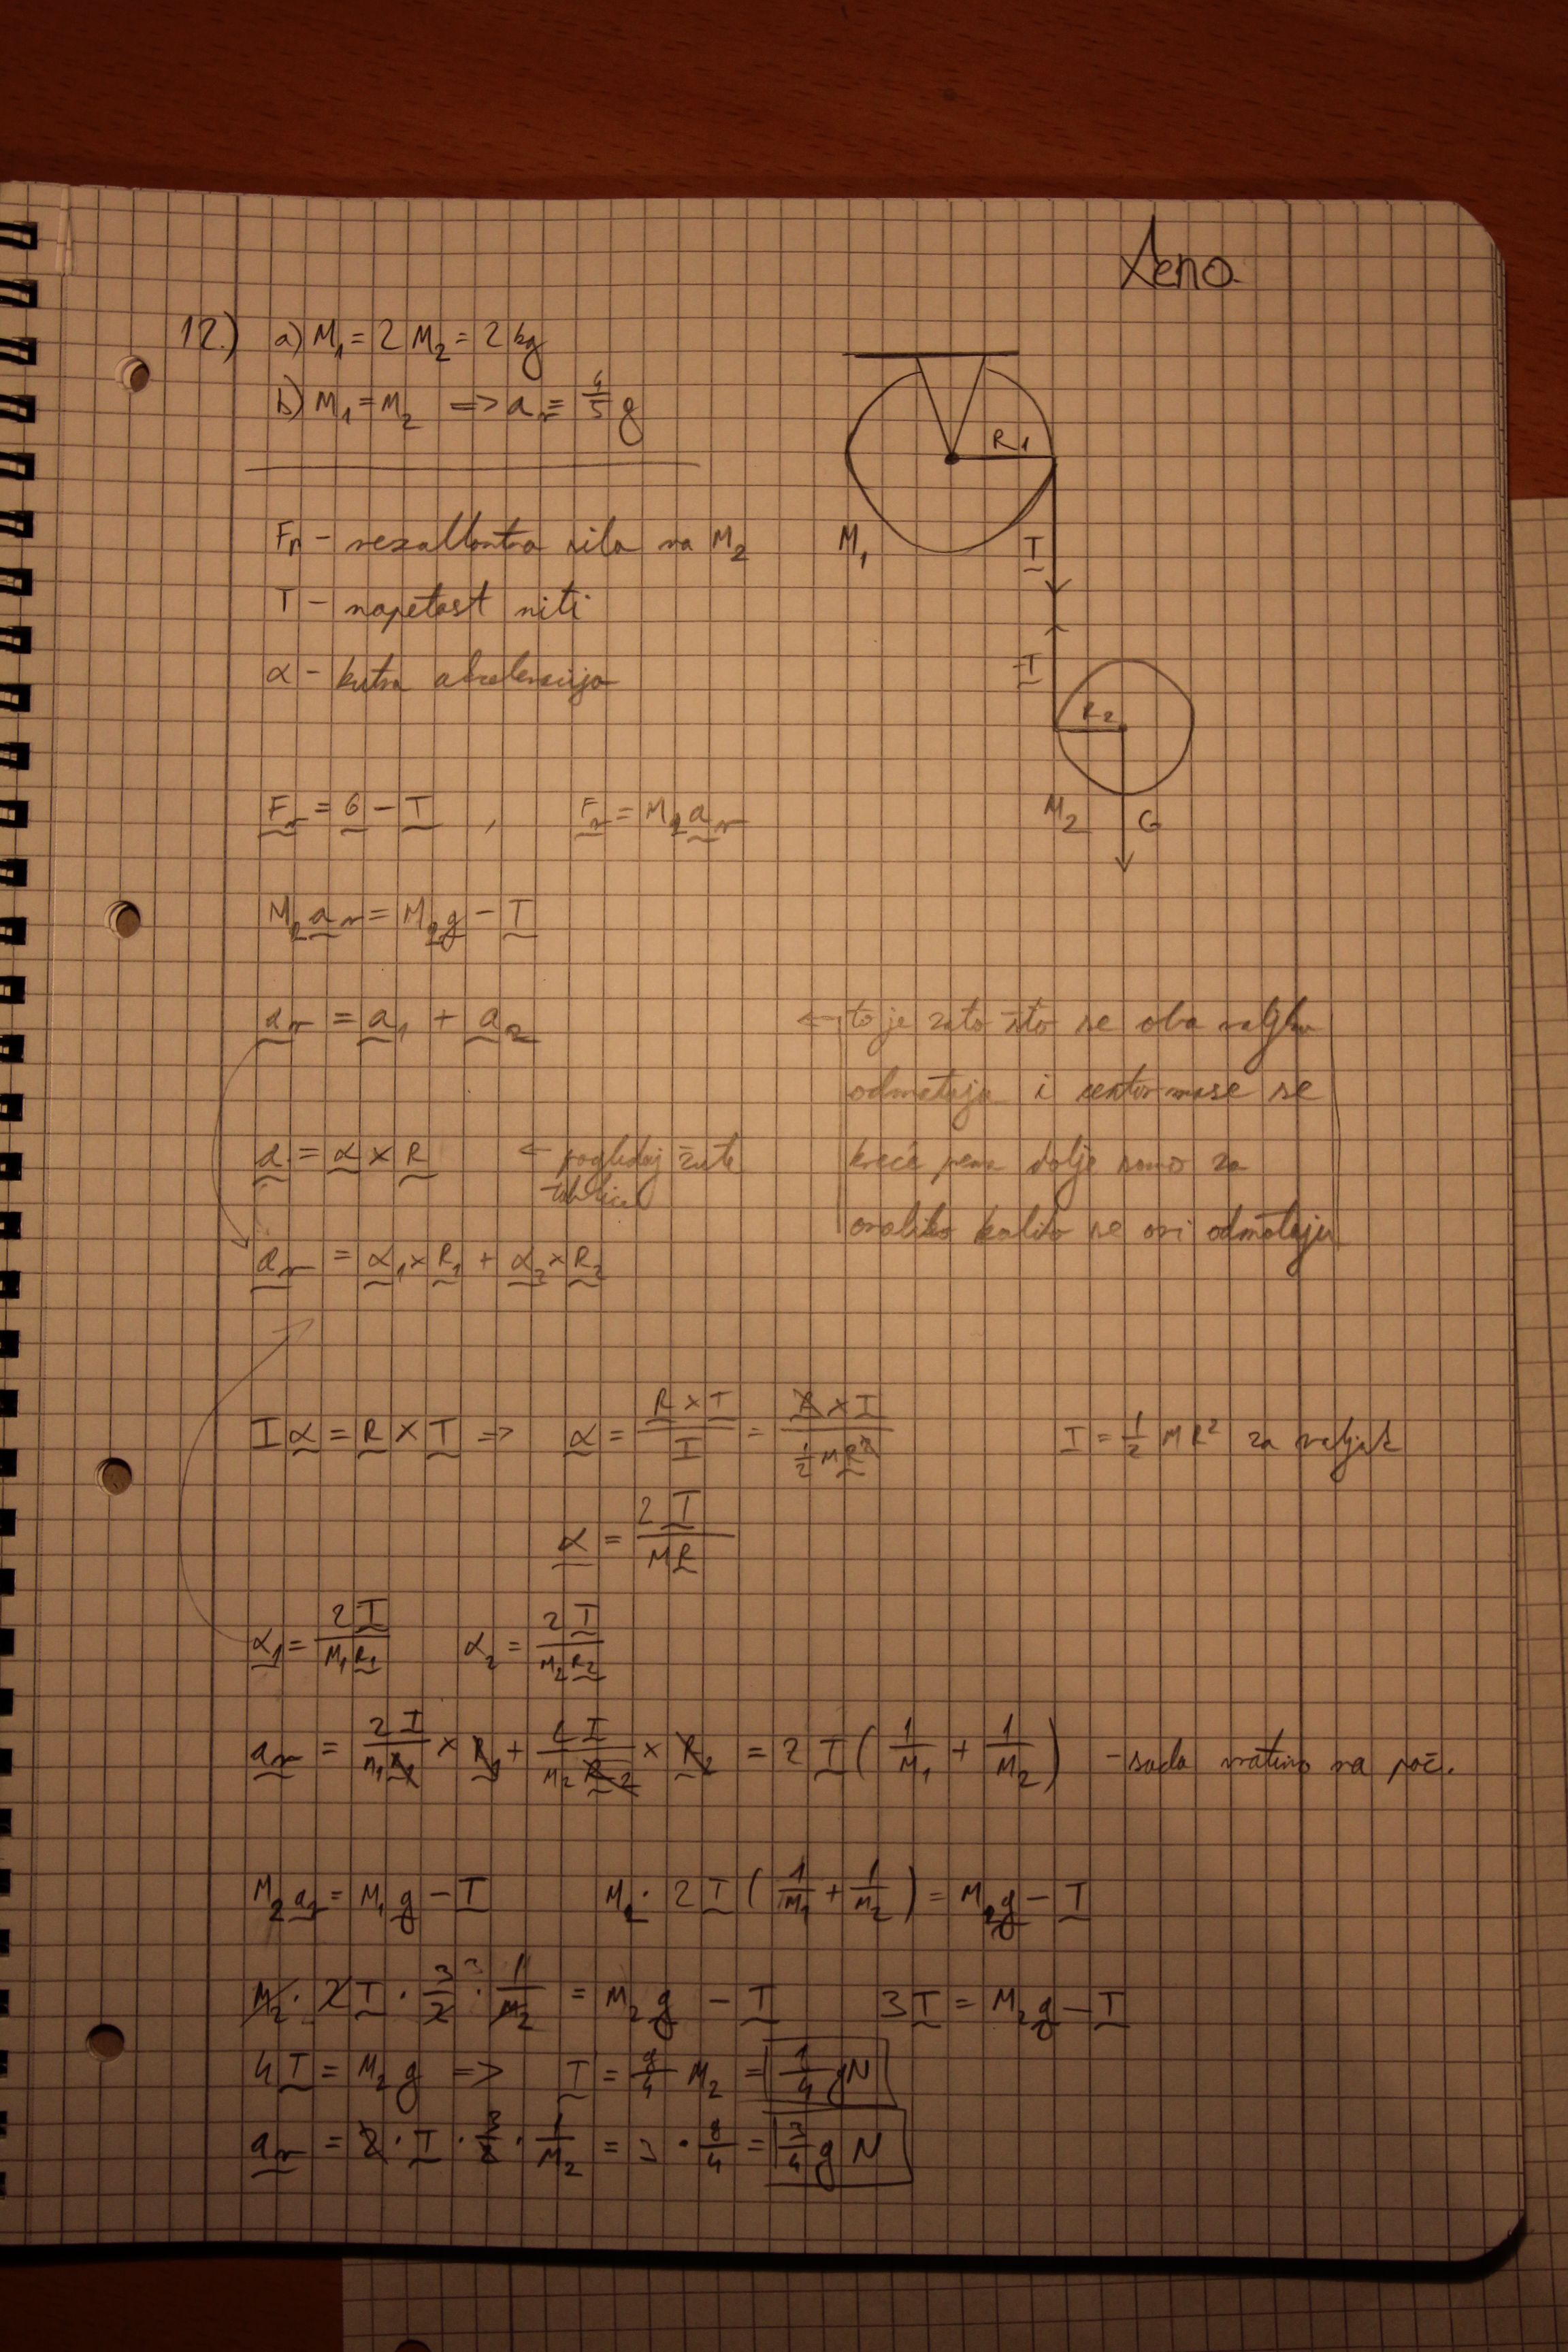 Leno
12.) a) M₁ = 2 M₂ = 2 kg
b) M₁ = M₂ => a_r = 4/5 g
R₁
M₁
T
-T
R₂
M₂ G
Fr - rezultantna sila na M₂
T - napetost niti
α - kutna akceleracija
F_r = G - T , F_r = M₂ a_r
M₂ a_r = M₂ g - T
a_r = a₁ + a₂ <- to je zato što se oba valjka
odmataju i centar mase se
kreće prema dolje samo za
onoliko koliko se oni odmotaju
a = α × R <- pogledaj žute
tablice
a_r = α₁ × R₁ + α₂ × R₂
I α = R × T => α = R × T / I = R × T / ½ M R² I = ½ M R² za valjak
α = 2 T / M R
α₁ = 2 T / M₁ R₁ α₂ = 2 T / M₂ R₂
a_r = 2 T / M₁ R₁ × R₁ + 2 T / M₂ R₂ × R₂ = 2 T ( 1/M₁ + 1/M₂ ) - sada vratimo na poč.
M₂ a₂ = M₁ g - T M₂ · 2 T ( 1/M₁ + 1/M₂ ) = M₂ g - T
M₂ · 2 T · 3/2 · 1/M₂ = M₂ g - T 3 T = M₂ g - T
4 T = M₂ g => T = g/4 M₂ = 1/4 g N
a_r = 2 · T · 3/2 · 1/M₂ = 3 · g/4 = 3/4 g N